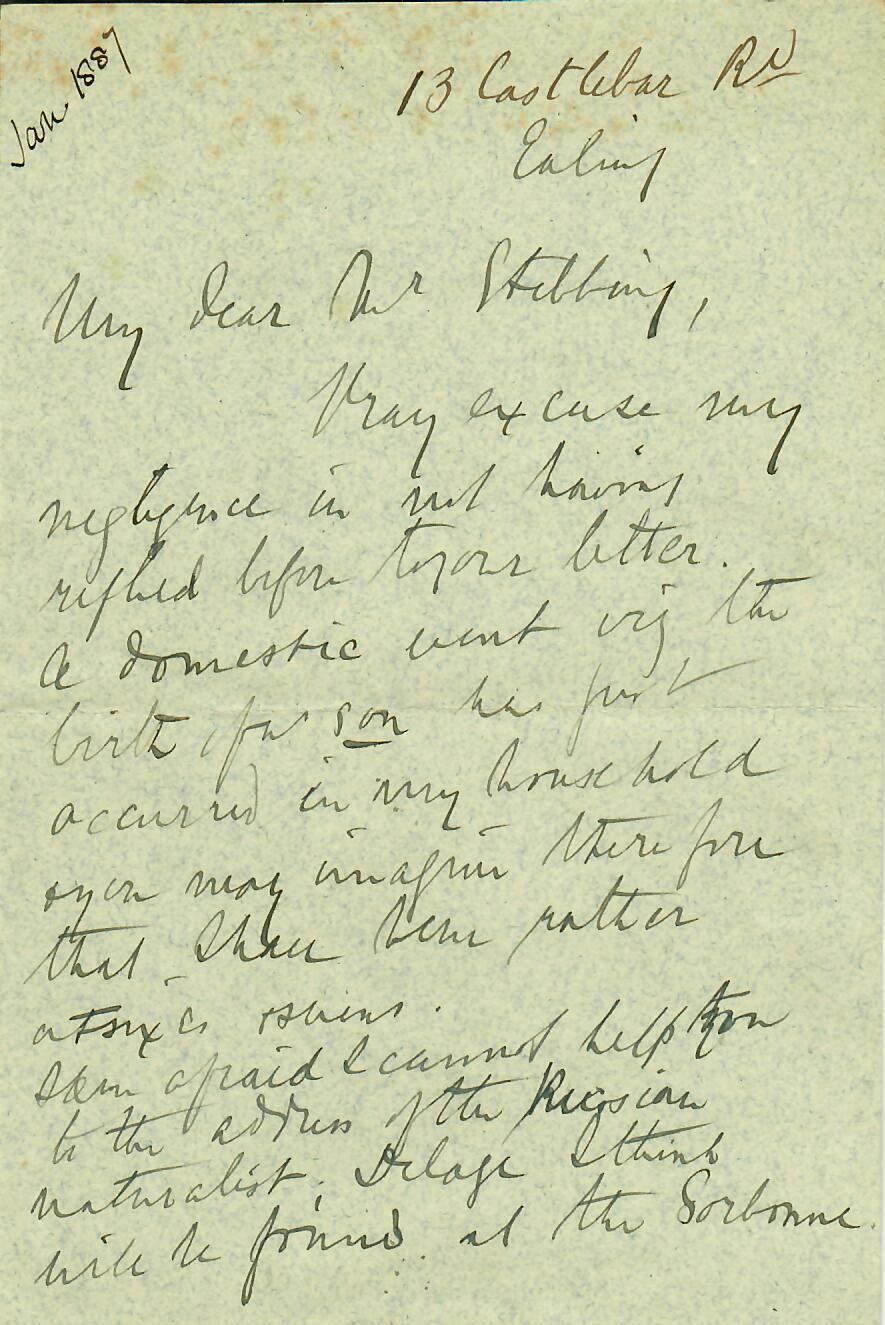 Jan 1887
13 Castlebar Rd
Ealing
My dear Mr Stebbing,
Pray excuse my
negligence in not having
replied before to your letter.
A domestic event viz the
birth of a son has just
occurred in my household
& you may imagine therefore
that I have been rather
at sixes & sevens.
I am afraid I cannot help you
to the address of the Russian
naturalist; Delage I think
will be found at the Sorbonne.